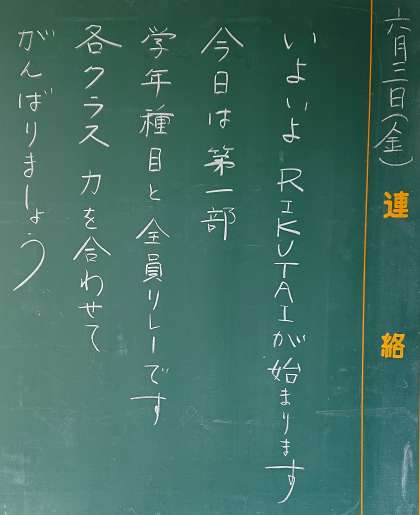 六月三日(金)
連絡
いよいよ RIKUTAIが始まります
今日は第一部
学年種目と全員リレーです
各クラス 力を合わせて
がんばりましょう